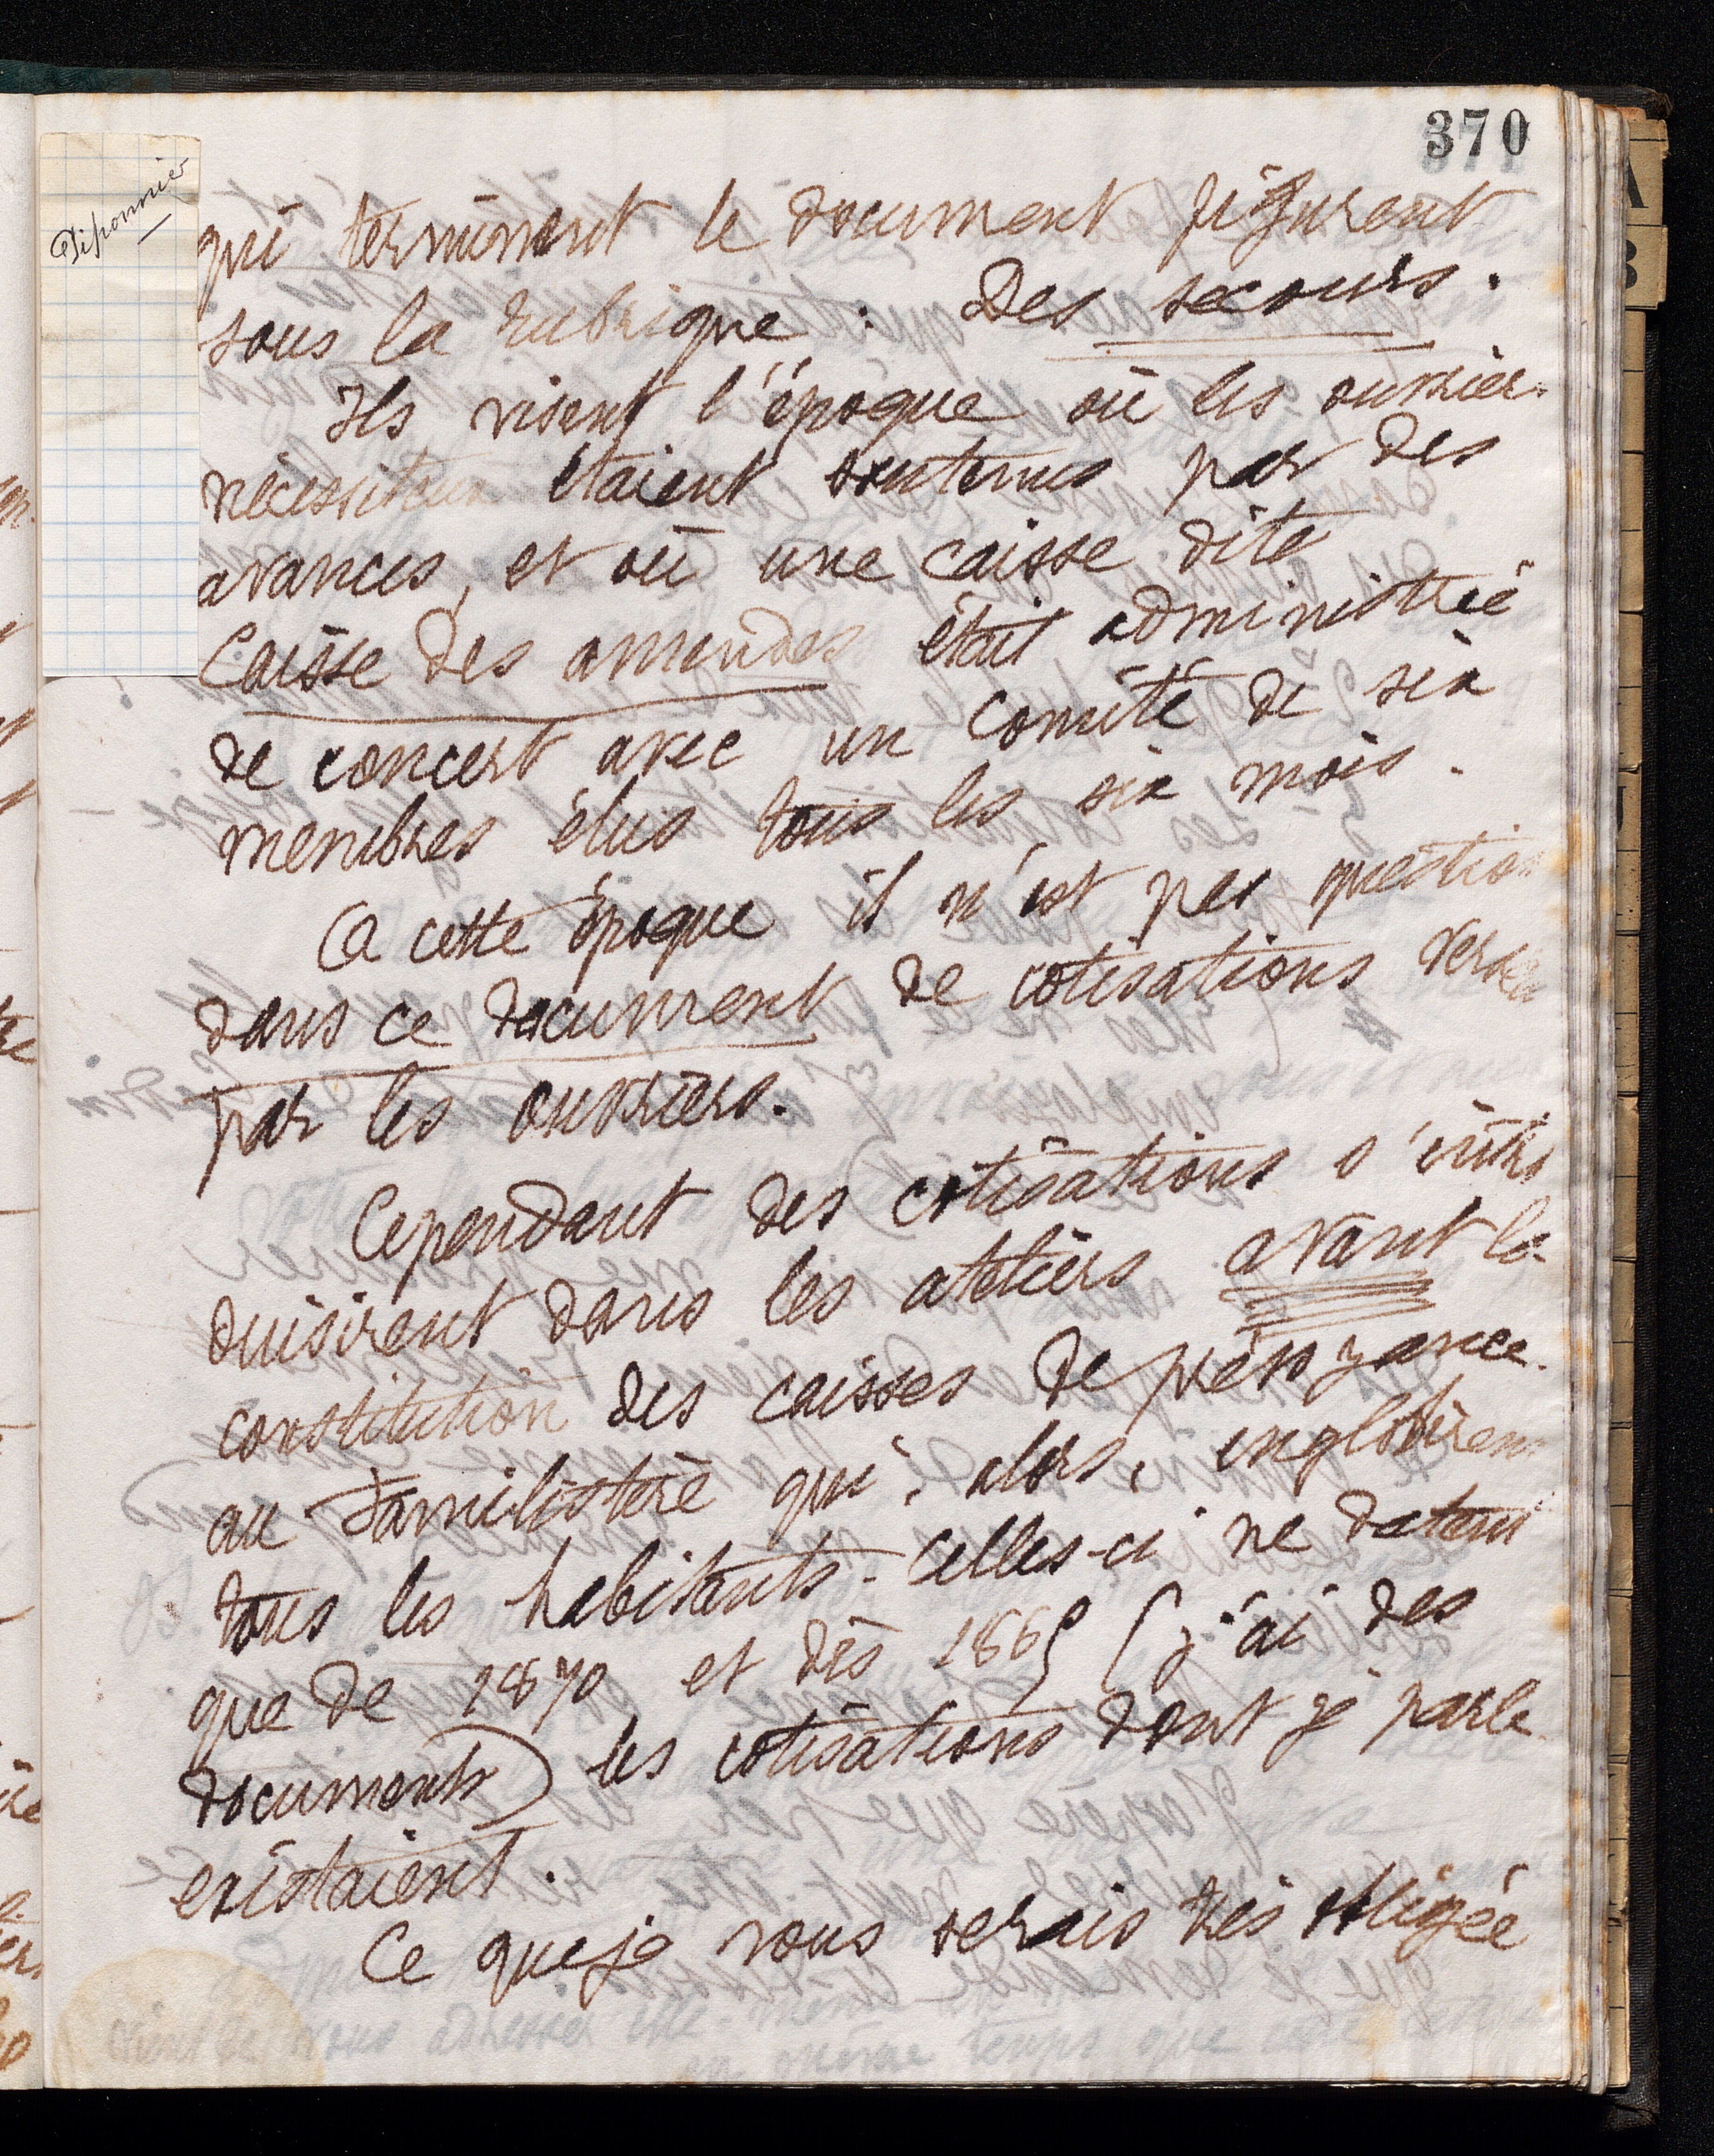 370
Diponnier
qui terminent le document figurent
sous la rubrique : Des secours.
Ils visent l'époque où les ouvriers
nécessiteux étaient soutenus par des
avances, et où une caisse dite
Caisse des amendes était administrée
de concert avec un comité de six
membres élus tous les six mois.
A cette époque il n'est pas question
dans ce document de cotisations versées
par les ouvriers.
Cependant des cotisations s'intro
duisirent dans les ateliers avant la
constitution des caisses de prévoyance
au Familistère qui, alors, englobèrent
tous les habitants. Celles-ci ne datent
que de 1870 et dès 1865 (j'ai des
documents) les cotisations dont je parle
existaient.
Ce que je vous serais très obligée